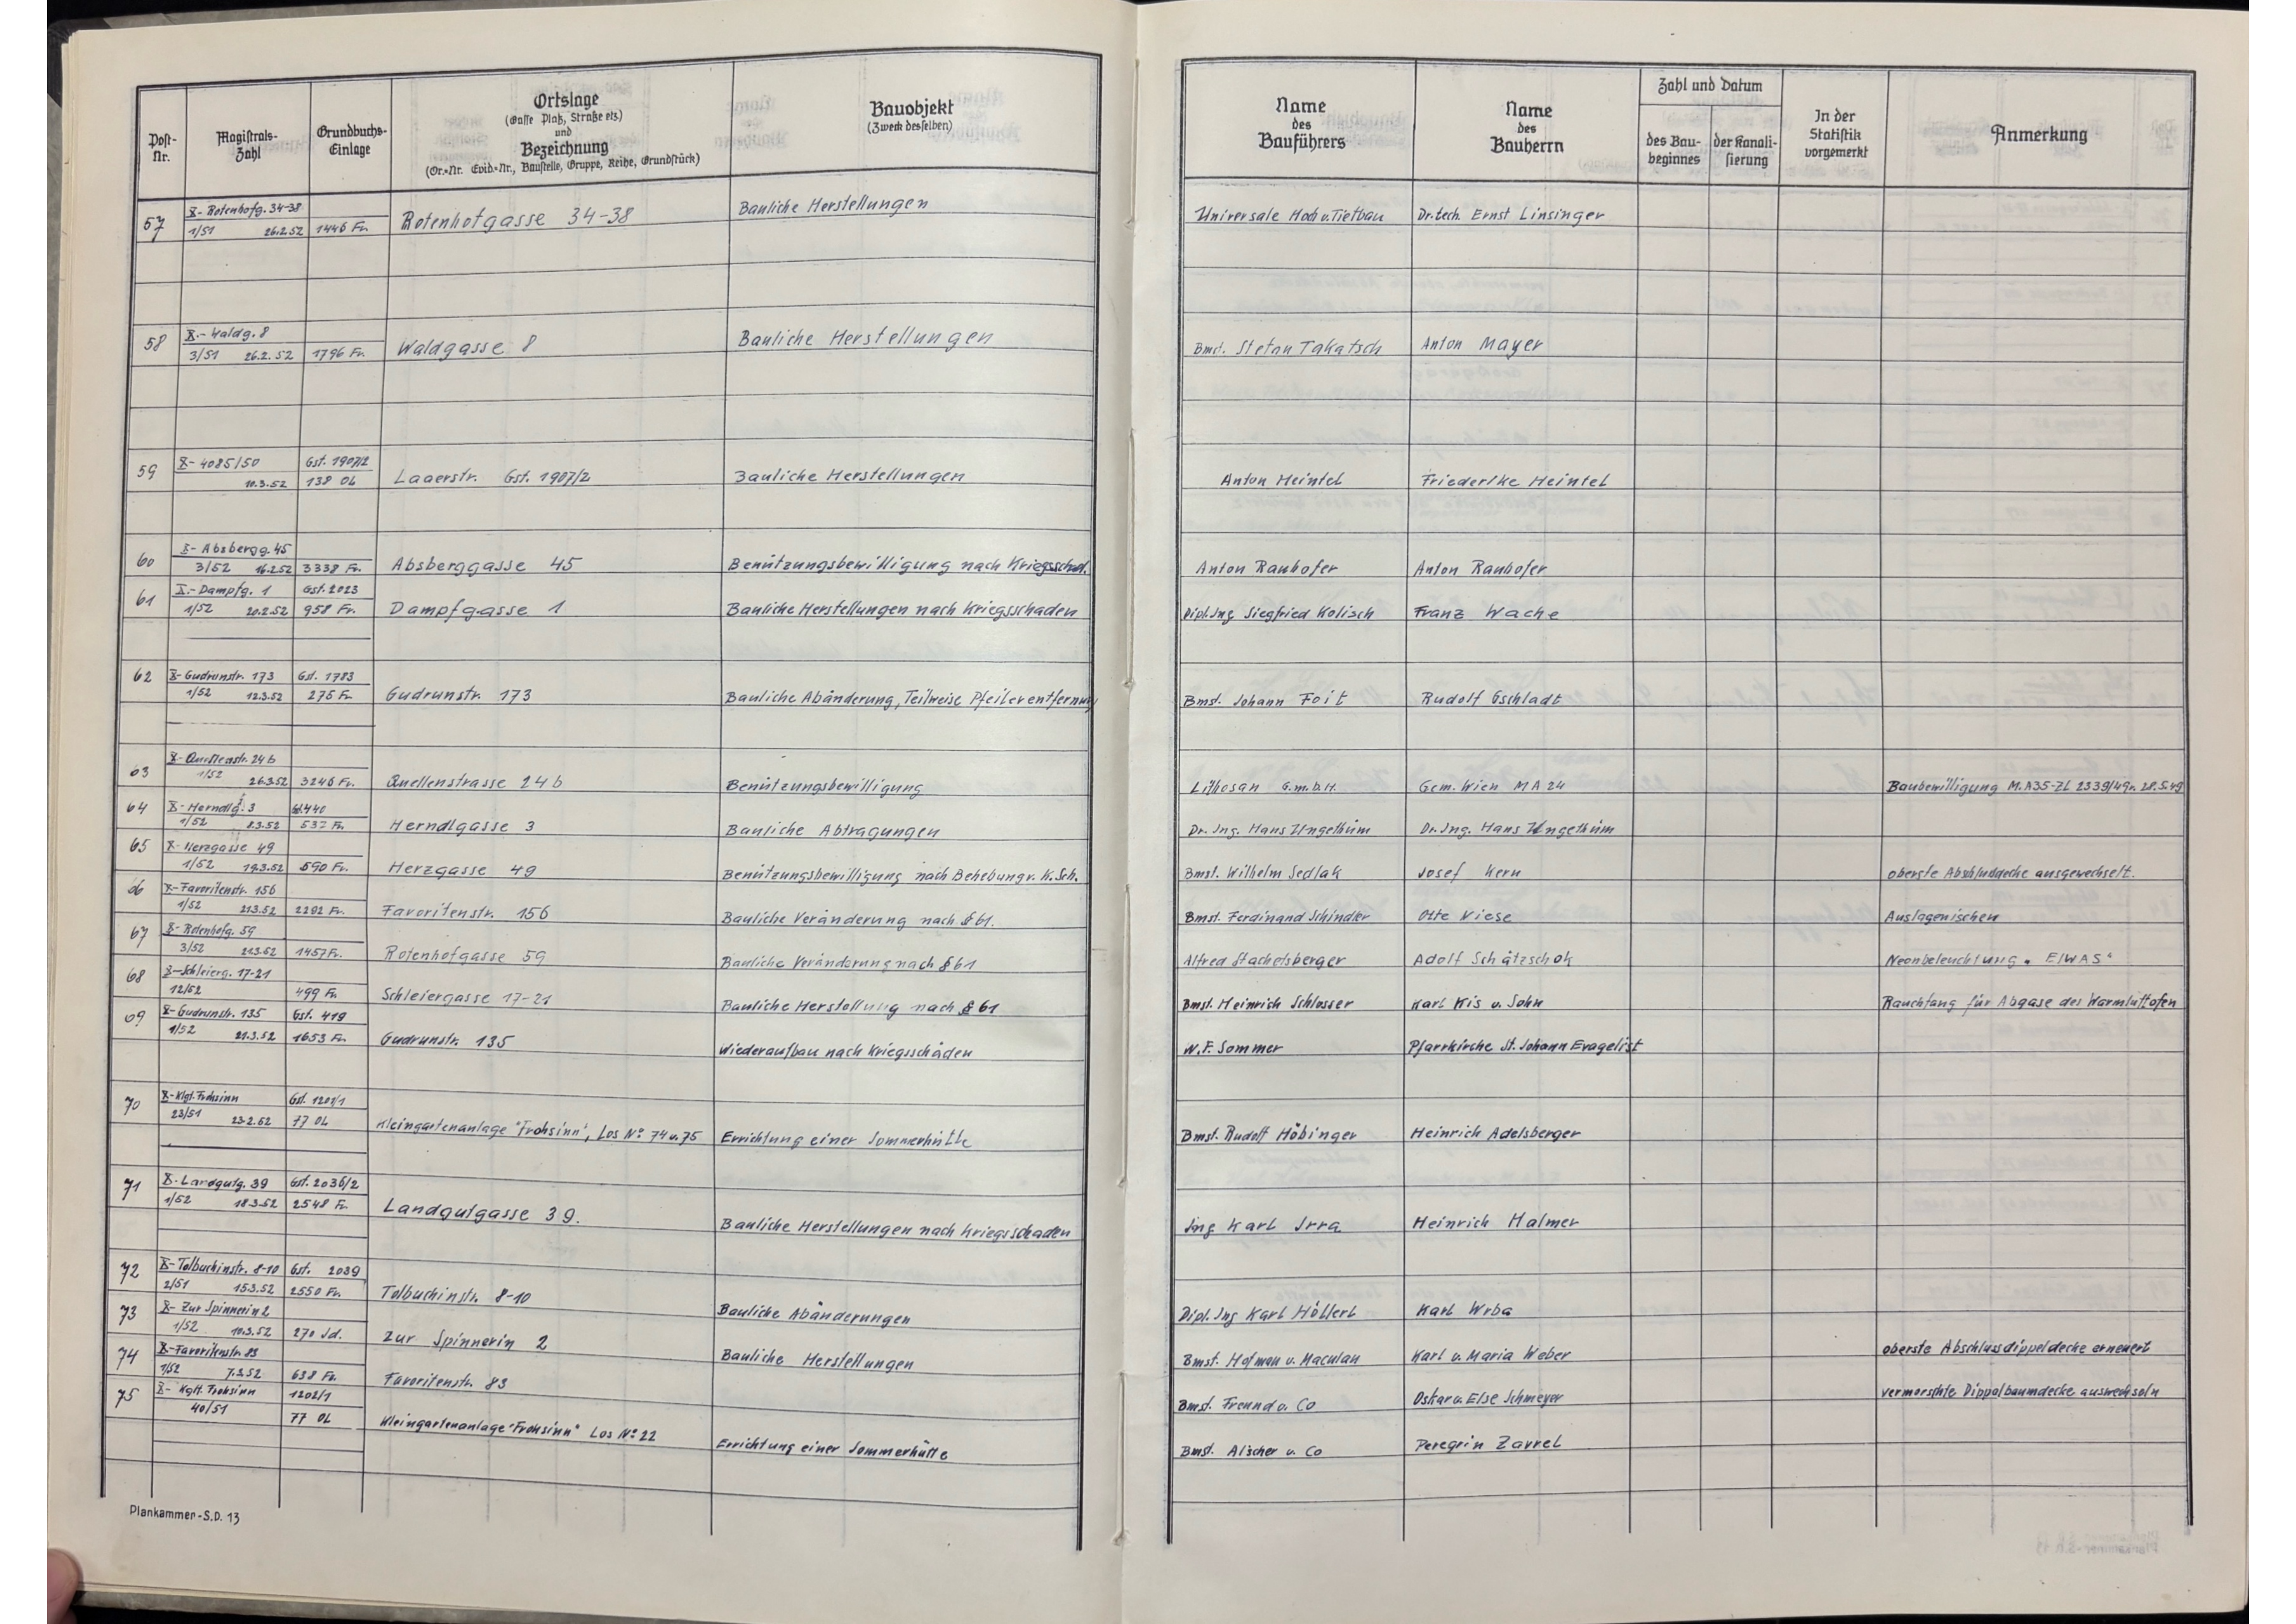 Post-Nr.
Magistrats-Zahl
Grundbuchs-Einlage
Ortslage
(Gasse Platz, Straße etz)
und
Bezeichnung
(Or.=Nr. Evid.=Nr., Baustelle, Gruppe, Reihe, Grundstück)
Bauobjekt
(Zweck desselben)
Name des Bauführers
Name des Bauherrn
Zahl und Datum
des Bau-beginnes
der Kanali-sierung
In der Statistik vorgemerkt
Anmerkung
X- Rotenhofg. 34-38
57 1/51 26.2.52 1446 Fr. Rotenhofgasse 34-38 Bauliche Herstellungen Universale Hoch u. Tiefbau Dr. tech. Ernst Linsinger
X.- Waldg. 8
58 3/51 26.2.52 1796 Fr. Waldgasse 8 Bauliche Herstellungen Bmst. Stefan Takatsch Anton Mayer
X- 4085/50 Gst. 1907/2
59 10.3.52 138 OL Laaerstr. Gst. 1907/2 Bauliche Herstellungen Anton Heintel Friederike Heintel
X- Absbergg. 45
60 3/52 16.2.52 3338 Fr. Absberggasse 45 Benützungsbewilligung nach Kriegsschad. Anton Rauhofer Anton Rauhofer
X.- Dampfg. 1 Gst. 2023
61 1/52 20.2.52 958 Fr. Dampfgasse 1 Bauliche Herstellungen nach Kriegsschaden Dipl. Ing Siegfried Kolisch Franz Wache
X- Gudrunstr. 173 Gst. 1783
62 1/52 12.3.52 275 Fr. Gudrunstr. 173 Bauliche Abänderung, Teilweise Pfeilerentfernung Bmst. Johann Foit Rudolf Gschladt
X- Quellenstr. 24 b
63 1/52 26.3.52 3246 Fr. Quellenstrasse 24 b Benützungsbewilligung Lithosan G.m.b.H. Gem. Wien MA 24 Baubewilligung M.A35-Zl 2339/49 v. 28.5.49
X- Herndlg. 3
64 1/52 8.3.52 532 Fr. Herndlgasse 3 Bauliche Abtragungen Dr. Ing. Hans Ungethüm Dr. Ing. Hans Ungethüm
X- Herzgasse 49
65 1/52 19.3.52 590 Fr. Herzgasse 49 Benützungsbewilligung nach Behebung v. K.Sch. Bmst. Wilhelm Sedlak Josef Kern oberste Abschlußdecke ausgewechselt.
X- Favoritenstr. 156
66 1/52 21.3.52 2292 Fr. Favoritenstr. 156 Bauliche Veränderung nach § 61. Bmst. Ferdinand Schindler Otto Viese Auslagenischen
X- Rotenhofg. 59
67 3/52 21.3.52 1457 Fr. Rotenhofgasse 59 Bauliche Veränderung nach § 61 Alfred Stachelsberger Adolf Schätzschok Neonbeleuchtung „EIWAS"
X- Schleierg. 17-21
68 12/52 499 Fr. Schleiergasse 17-21 Bauliche Herstellung nach § 61 Bmst. Heinrich Schlosser Karl Kis u. Sohn Rauchfang für Abgase des Warmluftofen
X- Gudrunstr. 135 Gst. 419
69 1/52 21.3.52 1653 Fr. Gudrunstr. 135 Wiederaufbau nach Kriegsschäden W.F. Sommer Pfarrkirche St. Johann Evagelist
X- Klgt. Frohsinn Gst. 1201/1
70 23/51 23.2.52 77 OL Kleingartenanlage "Frohsinn", Los No 74 u. 75 Errichtung einer Sommerhütte Bmst. Rudolf Höbinger Heinrich Adelsberger
X- Landgutg. 39 Gst. 2036/2
71 1/52 18.3.52 2548 Fr. Landgutgasse 39. Bauliche Herstellungen nach Kriegsschaden Ing Karl Irra Heinrich Halmer
X- Tolbuchinstr. 8-10 Gst. 2039
72 2/51 15.3.52 2550 Fr. Tolbuchinstr. 8-10 Bauliche Abänderungen Dipl. Ing Karl Höllerl Karl Wrba
X- Zur Spinnerin 2
73 1/52 10.3.52 270 Jd. Zur Spinnerin 2 Bauliche Herstellungen Bmst. Hofman u. Maculan Karl u. Maria Weber oberste Abschlussdippeldecke erneuert
X- Favoritenstr. 83
74 1/52 7.3.52 638 Fr. Favoritenstr. 83 Bmst. Freund u. Co Oskar u. Else Schmeyer vermorschte Dippelbaumdecke auswechseln
X- Kgtl. Frohsinn 1202/1
75 40/51 77 OL Kleingartenanlage "Frohsinn" Los No 22 Errichtung einer Sommerhütte Bmst. Alscher u. Co Peregrin Zavrel
Plankammer-S.D. 13